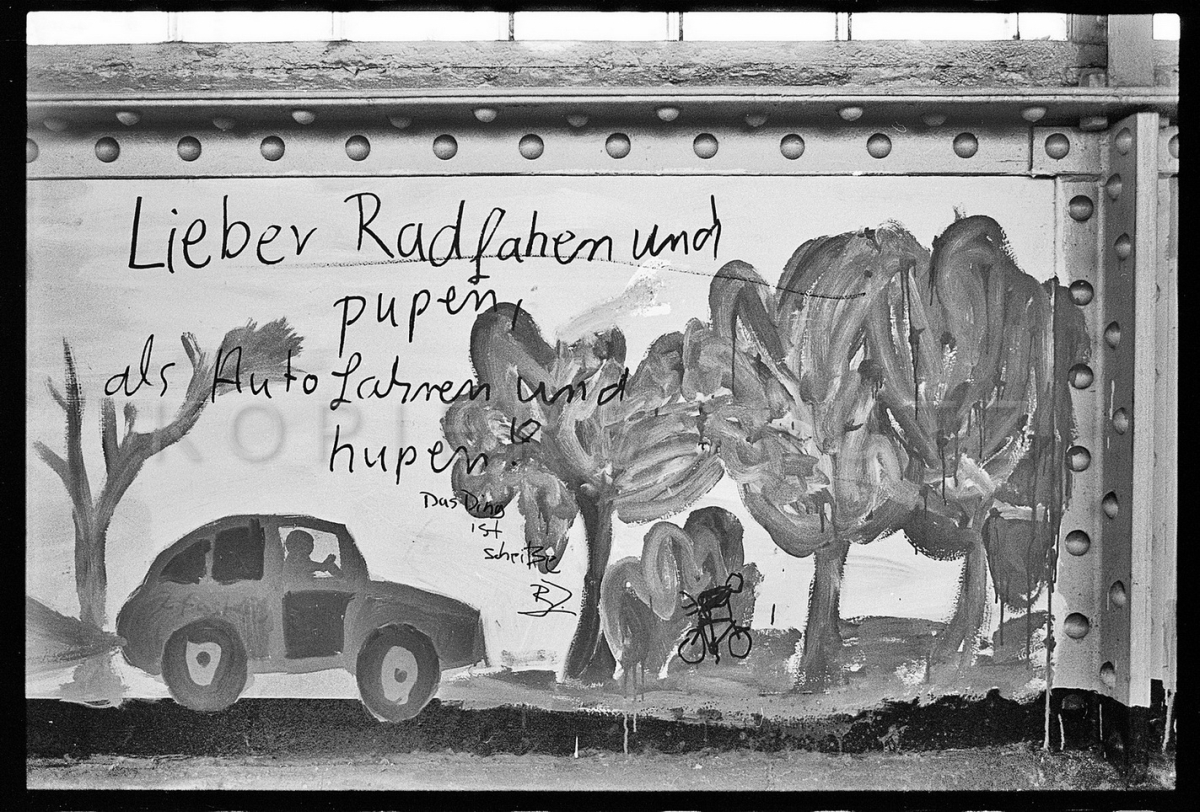 Lieber Radfahen und
pupen,
als Auto fahren und
hupen!
Das Ding
ist
scheiße